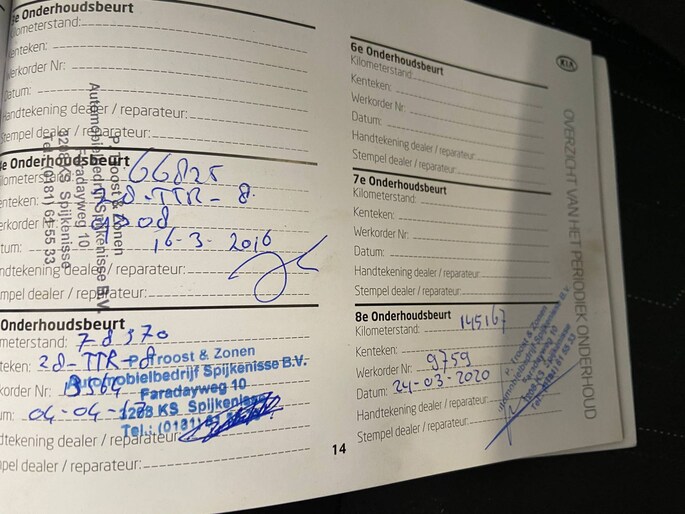 3e Onderhoudsbeurt
Kilometerstand:
Kenteken:
Werkorder Nr:
Datum:
Handtekening dealer / reparateur:
Stempel dealer / reparateur:
4e Onderhoudsbeurt
Kilometerstand: 66825
Kenteken: 28-TTR-8
Werkorder Nr:
Datum: 16-3-2016
Handtekening dealer / reparateur:
Stempel dealer / reparateur:
P. Troost & Zonen
Automobielbedrijf Spijkenisse B.V.
Faradayweg 10
3208 KS Spijkenisse
Tel. (0181) 61 55 33
Onderhoudsbeurt
meterstand: 78370
teken: 28-TTR-8
korder Nr: 13564
um: 04-04-17
dtekening dealer / reparateur:
pel dealer / reparateur:
P. Troost & Zonen
Automobielbedrijf Spijkenisse B.V.
Faradayweg 10
KS Spijkenisse
Tel.: (0181) 61
6e Onderhoudsbeurt
Kilometerstand:
Kenteken:
Werkorder Nr:
Datum:
Handtekening dealer / reparateur:
Stempel dealer / reparateur:
7e Onderhoudsbeurt
Kilometerstand:
Kenteken:
Werkorder Nr:
Datum:
Handtekening dealer / reparateur:
Stempel dealer / reparateur:
8e Onderhoudsbeurt
Kilometerstand: 145167
Kenteken:
Werkorder Nr: 9759
Datum: 24-03-2020
Handtekening dealer / reparateur:
Stempel dealer / reparateur:
Troost & Zonen
Automobielbedrijf Spijkenisse B.V.
Faradayweg 10
KS Spijkenisse
14
KIA
OVERZICHT VAN HET PERIODIEK ONDERHOUD